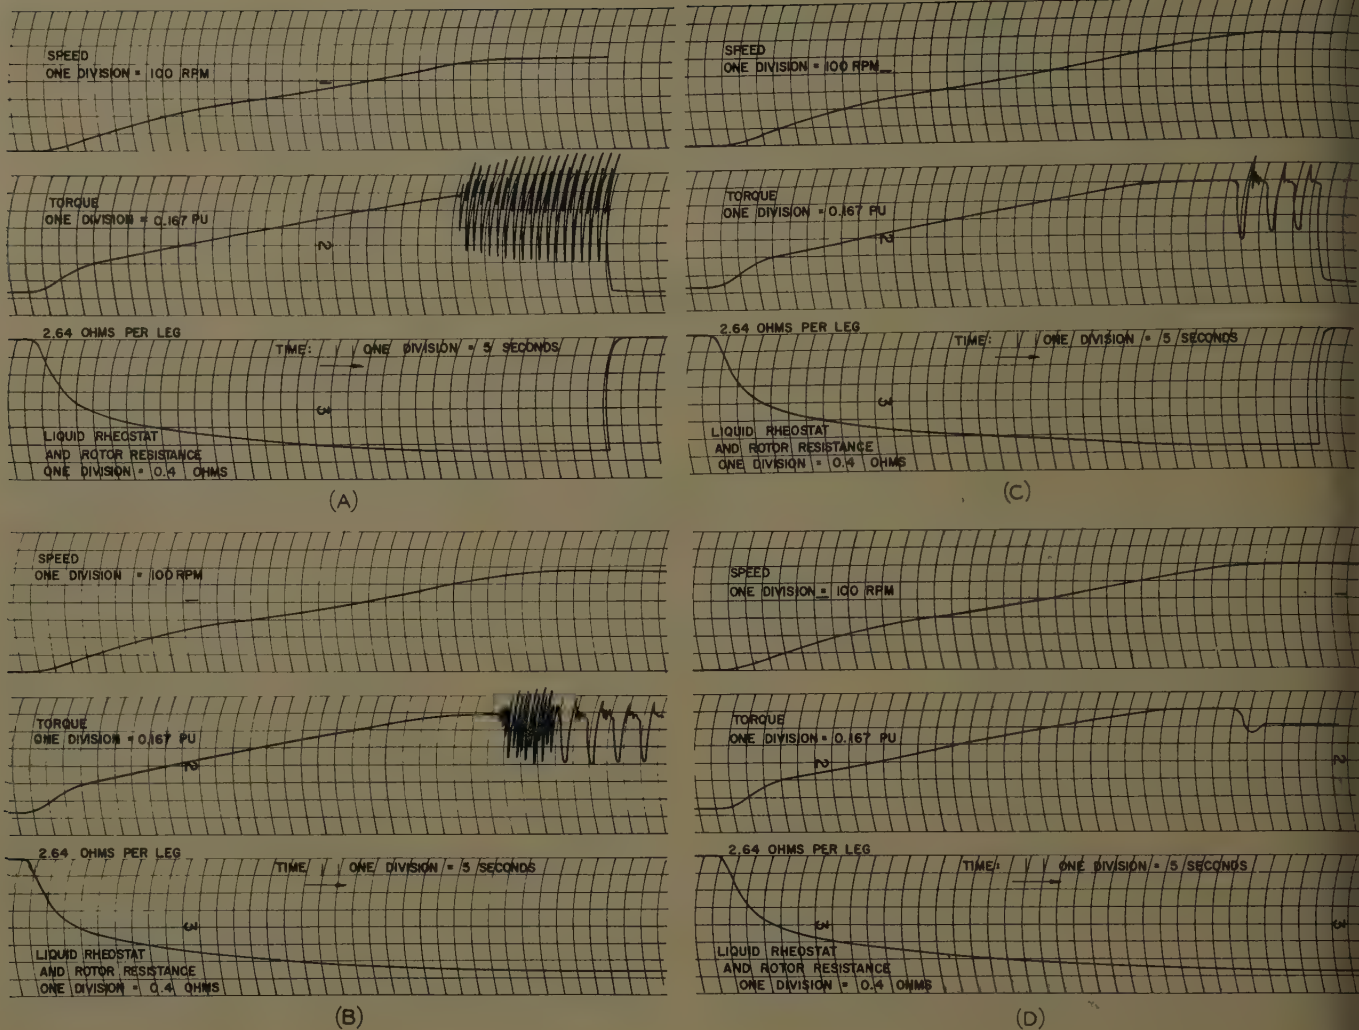 SPEED
ONE DIVISION = 100 RPM
1
TORQUE
ONE DIVISION = 0.167 PU
2
2.64 OHMS PER LEG
TIME: ONE DIVISION = 5 SECONDS
3
LIQUID RHEOSTAT
AND ROTOR RESISTANCE
ONE DIVISION = 0.4 OHMS
(A)
SPEED
ONE DIVISION = 100 RPM
TORQUE
ONE DIVISION = 0.167 PU
2
2.64 OHMS PER LEG
TIME: ONE DIVISION = 5 SECONDS
3
LIQUID RHEOSTAT
AND ROTOR RESISTANCE
ONE DIVISION = 0.4 OHMS
(C)
SPEED
ONE DIVISION = 100 RPM
TORQUE
ONE DIVISION = 0.167 PU
2
2.64 OHMS PER LEG
TIME ONE DIVISION = 5 SECONDS
3
LIQUID RHEOSTAT
AND ROTOR RESISTANCE
ONE DIVISION = 0.4 OHMS
(B)
SPEED
ONE DIVISION = 100 RPM
1
TORQUE
ONE DIVISION = 0.167 PU
2
2
2.64 OHMS PER LEG
TIME: ONE DIVISION = 5 SECONDS
3
3
LIQUID RHEOSTAT
AND ROTOR RESISTANCE
ONE DIVISION = 0.4 OHMS
(D)